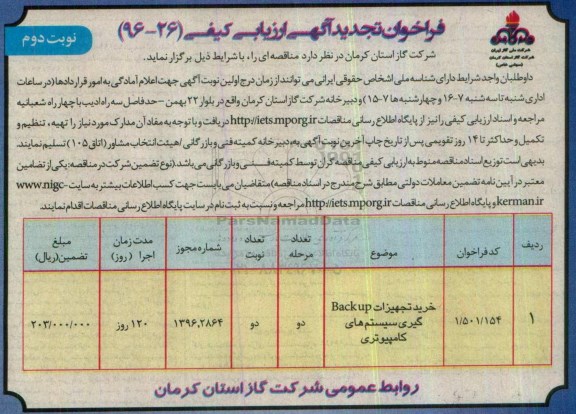 فراخوان تجدید آگهی ارزیابی کیفی (۲۶-۹۶)
نوبت دوم
شرکت ملی گاز ایران
شرکت گاز استان کرمان
(سهامی خاص)
شرکت گاز استان کرمان در نظر دارد مناقصه‌ای را، با شرایط ذیل برگزار نماید.
داوطلبان واجد شرایط دارای شناسه ملی اشخاص حقوقی ایرانی می‌توانند از زمان درج اولین نوبت آگهی جهت اعلام آمادگی به امور قراردادها (در ساعات
اداری شنبه تا سه شنبه ۷-۱۶ و چهارشنبه‌ها ۷-۱۵) و دبیرخانه شرکت گاز استان کرمان واقع در بلوار ۲۲ بهمن - حد فاصل سه راه ادیب با چهار راه شعبانیه
مراجعه و اسناد ارزیابی کیفی را نیز از پایگاه اطلاع رسانی مناقصات http://iets.mporg.ir دریافت و با توجه به مفاد آن مدارک مورد نیاز را تهیه، تنظیم و
تکمیل و حداکثر تا ۱۴ روز تقویمی پس از تاریخ چاپ آخرین نوبت آگهی به، دبیرخانه کمیته فنی و بازرگانی/هیئت انتخاب مشاور (اتاق ۱۰۵) تسلیم نمایند.
بدیهی است توزیع اسناد مناقصه منوط به ارزیابی کیفی مناقصه گران توسط کمیته فنی و بازرگانی می‌باشد. (نوع تضمین شرکت در مناقصه: یکی از تضامین
معتبر در آیین نامه تضمین معاملات دولتی مطابق شرح مندرج در اسناد مناقصه) متقاضیان می بایست جهت کسب اطلاعات بیشتر به سایت www.nigc-
kerman.ir و پایگاه اطلاع رسانی مناقصات http://iets.mporg.ir مراجعه و نسبت به ثبت نام در سایت پایگاه اطلاع رسانی مناقصات اقدام نمایند.
ParsNamadData
ردیف	کد فراخوان	موضوع	تعداد مرحله	تعداد نوبت	شماره مجوز	مدت زمان اجرا (روز)	مبلغ تضمین (ریال)
۱	۱/۵۰۱/۱۵۴	خرید تجهیزات Backup گیری سیستم‌های کامپیوتری	دو	دو	۱۳۹۶.۲۸۶۴	۱۲۰ روز	۲۰۳/۰۰۰/۰۰۰
روابط عمومی شرکت گاز استان کرمان